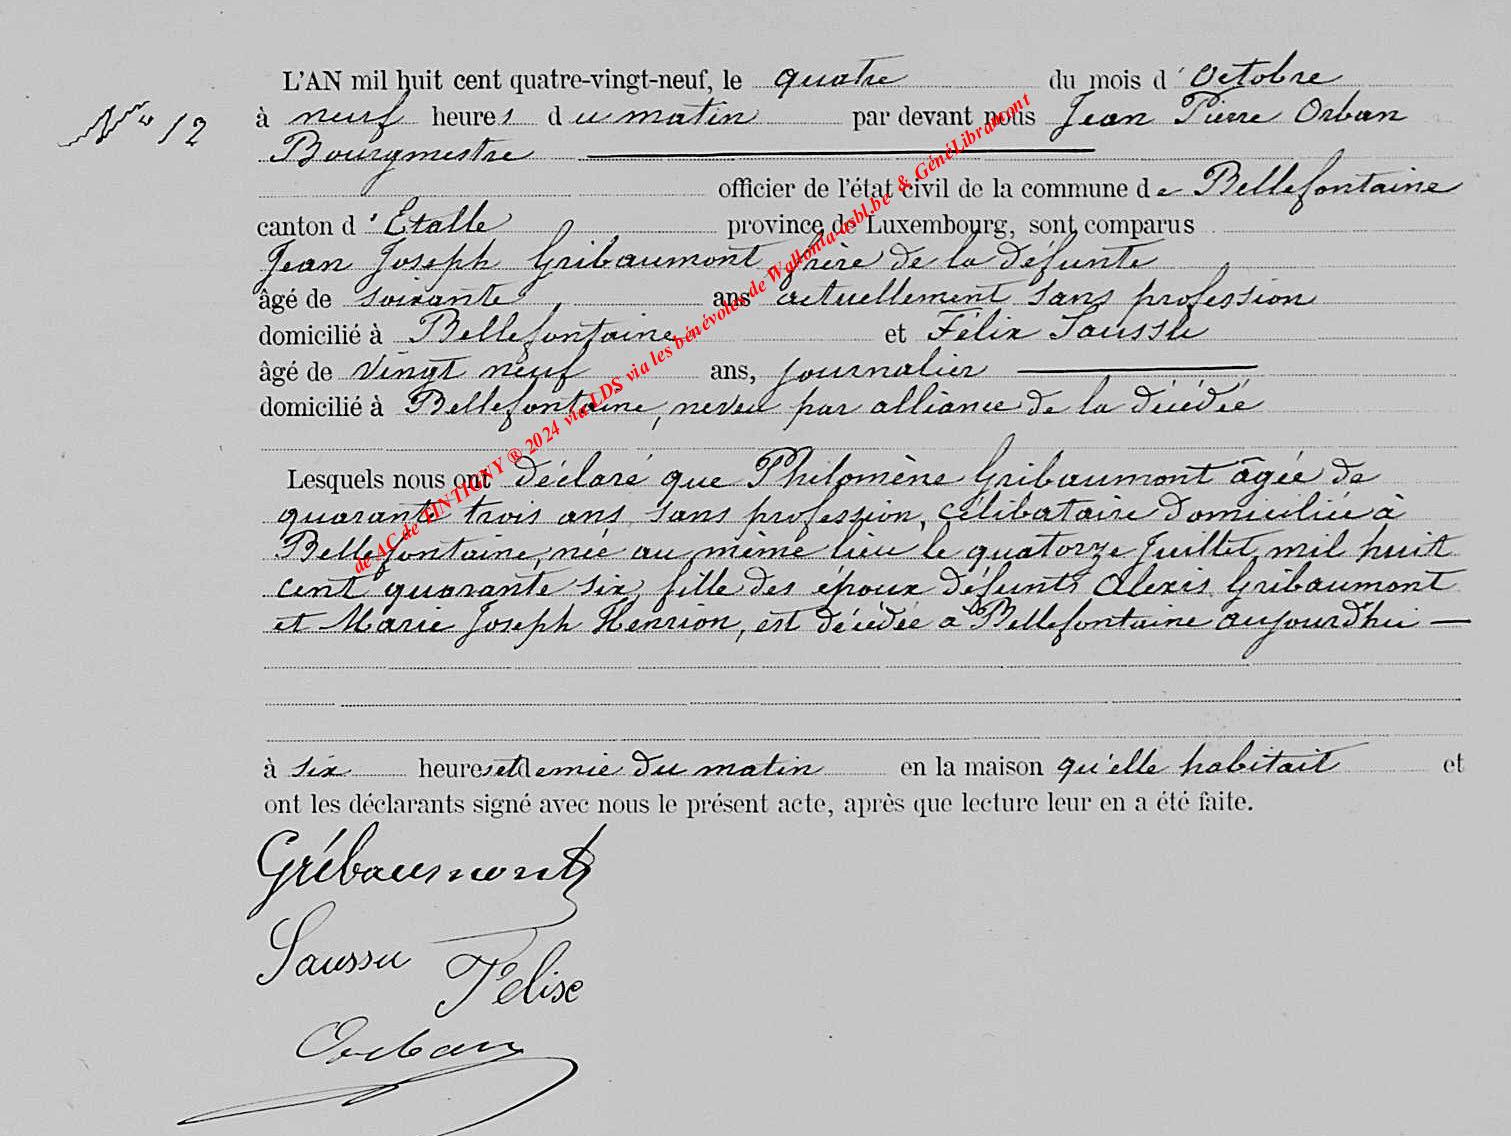 L'AN mil huit cent quatre-vingt-neuf, le quatre du mois d'Octobre
N° 12
à neuf heures du matin par devant nous Jean Pierre Orban
Bourgmestre
officier de l'état civil de la commune de Bellefontaine
canton d'Etalle province de Luxembourg, sont comparus
Jean Joseph Gribaumont frère de la défunte
âgé de soixante ans actuellement sans profession
domicilié à Bellefontaine et Félix Saussu
âgé de vingt neuf ans, journalier
domicilié à Bellefontaine, neveu par alliance de la décédée
Lesquels nous ont déclaré que Philomène Gribaumont âgée de
quarante trois ans, sans profession, célibataire domiciliée à
Bellefontaine, née au même lieu le quatorze Juillet mil huit
cent quarante six, fille des époux défunts Alexis Gribaumont
et Marie Joseph Henrion, est décédée à Bellefontaine aujourd'hui
à six heures et demie du matin en la maison qu'elle habitait et
ont les déclarants signé avec nous le présent acte, après que lecture leur en a été faite.
Grébaumont
Saussu Felixe
Orban
de AC de TINTIGNY ® 2024 via LDS via les bénévoles de Wallonia-asbl.be & GénéLibramont